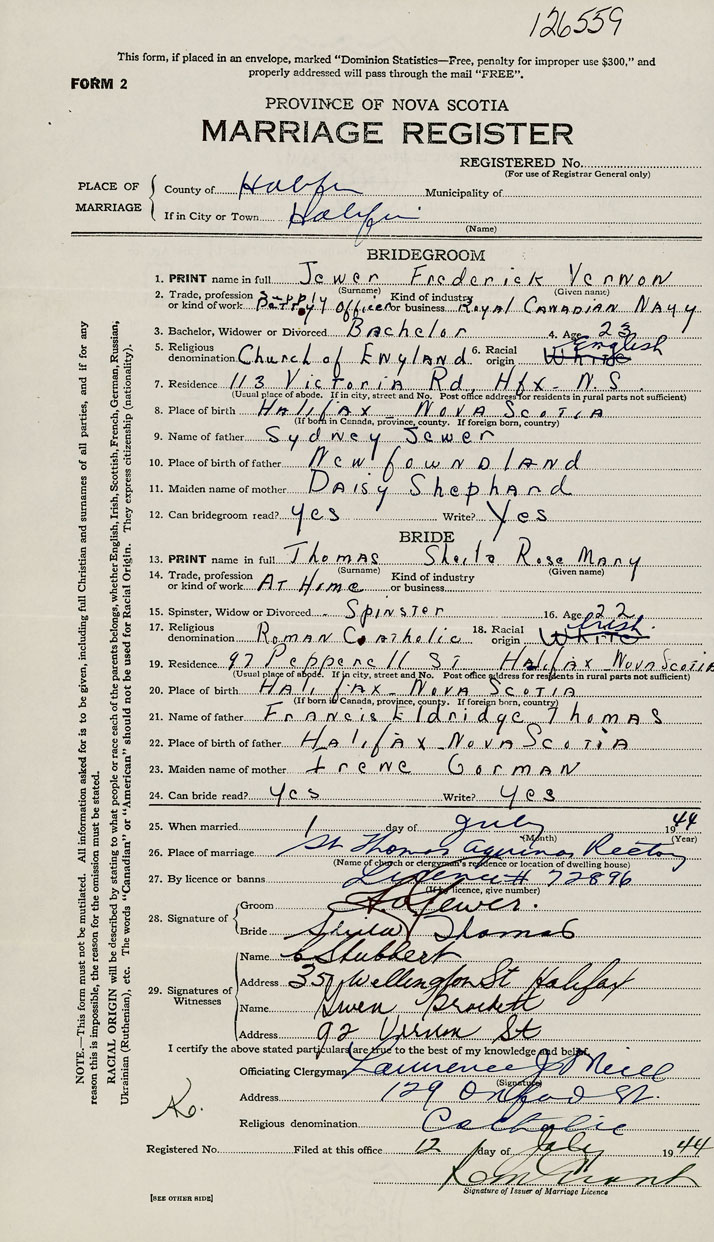 126559
This form, if placed in an envelope, marked "Dominion Statistics—Free, penalty for improper use $300," and
properly addressed will pass through the mail "FREE".
FORM 2
PROVINCE OF NOVA SCOTIA
MARRIAGE REGISTER
REGISTERED No.
(For use of Registrar General only)
PLACE OF MARRIAGE
County of Halifax Municipality of
If in City or Town Halifax
(Name)
BRIDEGROOM
1. PRINT name in full Jewer Frederick Vernon
(Surname) (Given name)
2. Trade, profession or kind of work Supply Petty Officer Kind of industry or business Royal Canadian Navy
3. Bachelor, Widower or Divorced Bachelor 4. Age 23
5. Religious denomination Church of England 6. Racial origin White English
7. Residence 113 Victoria Rd, Hfx. N.S.
(Usual place of abode. If in city, street and No. Post office address for residents in rural parts not sufficient)
8. Place of birth Halifax Nova Scotia
(If born in Canada, province, county. If foreign born, country)
9. Name of father Sydney Jewer
10. Place of birth of father Newfoundland
11. Maiden name of mother Daisy Shephard
12. Can bridegroom read? Yes Write? Yes
BRIDE
13. PRINT name in full Thomas Sheila Rose Mary
(Surname) (Given name)
14. Trade, profession or kind of work At Home Kind of industry or business
15. Spinster, Widow or Divorced Spinster 16. Age 22
17. Religious denomination Roman Catholic 18. Racial origin White Irish
19. Residence 97 Pepperell St Halifax Nova Scotia
(Usual place of abode. If in city, street and No. Post office address for residents in rural parts not sufficient)
20. Place of birth Halifax Nova Scotia
(If born in Canada, province, county. If foreign born, country)
21. Name of father Francis Eldridge Thomas
22. Place of birth of father Halifax Nova Scotia
23. Maiden name of mother Irene Gorman
24. Can bride read? Yes Write? Yes
25. When married 1 day of July 1944
(Month) (Year)
26. Place of marriage St Thomas Aquinas Rectory
(Name of church or clergyman's residence or location of dwelling house)
27. By licence or banns Licence # 72896
(If by licence, give number)
28. Signature of
Groom Jewer.
Bride Sheila Thomas
29. Signatures of Witnesses
Name
Address 357 Wellington St Halifax
Name Gwen
Address 92 Vernon St
I certify the above stated particulars are true to the best of my knowledge and belief.
Officiating Clergyman Laurence J O'Neill
(Signature)
Address 129 Oxford St.
Religious denomination Catholic
Registered No. Filed at this office 12 day of July 1944
Signature of Issuer of Marriage Licence
[SEE OTHER SIDE]
NOTE.—This form must not be mutilated. All information asked for is to be given, including full Christian and surnames of all parties, and if for any
reason this is impossible, the reason for the omission must be stated.
RACIAL ORIGIN will be described by stating to what people or race each of the parents belongs, whether English, Irish, Scottish, French, German, Russian,
Ukrainian (Ruthenian), etc. The words "Canadian" or "American" should not be used for Racial Origin. They express citizenship (nationality).